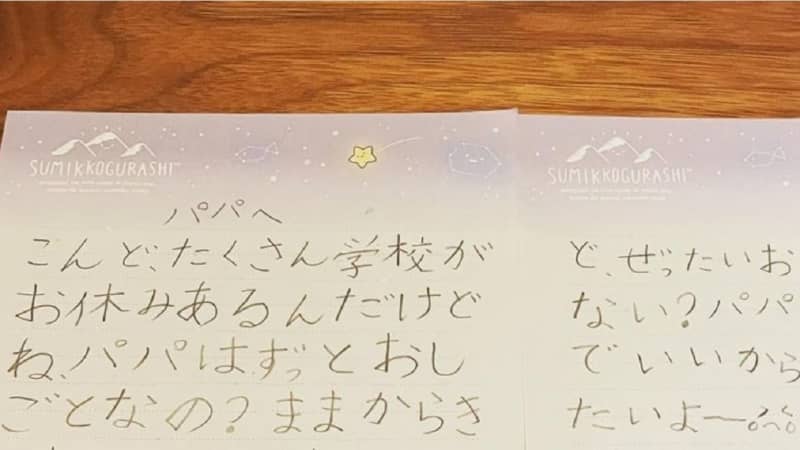 SUMIKKOGURASHI™
パパへ
こんど、たくさん学校が
お休みあるんだけど
ね、パパはずっとおし
ごとなの？ままからき
SUMIKKOGURASHI™
ど、ぜったいお
ない？パパ
でいいから
たいよー